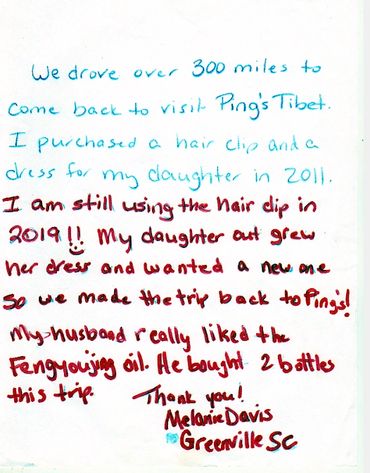 We drove over 300 miles to
come back to visit Ping's Tibet.
I purchased a hair clip and a
dress for my daughter in 2011.
I am still using the hair clip in
2019!! My daughter out grew
her dress and wanted a new one
so we made the trip back to Ping's!
My husband really liked the
Fengyoujing oil. He bought 2 bottles
this trip. Thank you!
Melanie Davis
Greenville SC